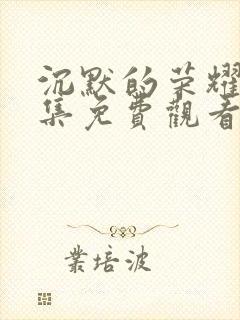 沉默的荣耀
集免費觀看
業培波